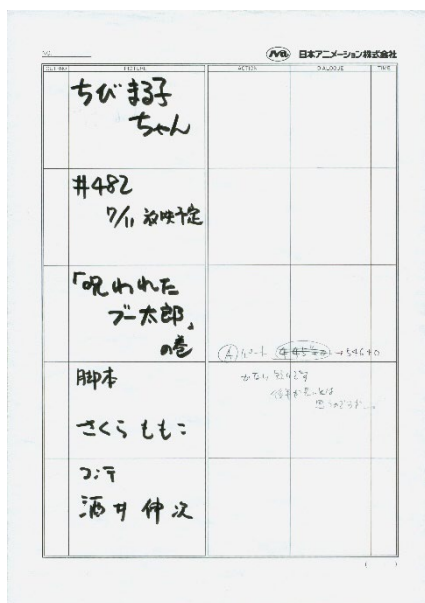 No.
日本アニメーション株式会社
CUT No.
PICTURE
ACTION
DIALOGUE
TIME
ちびまる子
ちゃん
#482
7/11 放映予定
「呪われた
ブー太郎」
の巻
脚本
さくら ももこ
コンテ
酒井 伸次
Ⓐパート
→54640
かなり
( )